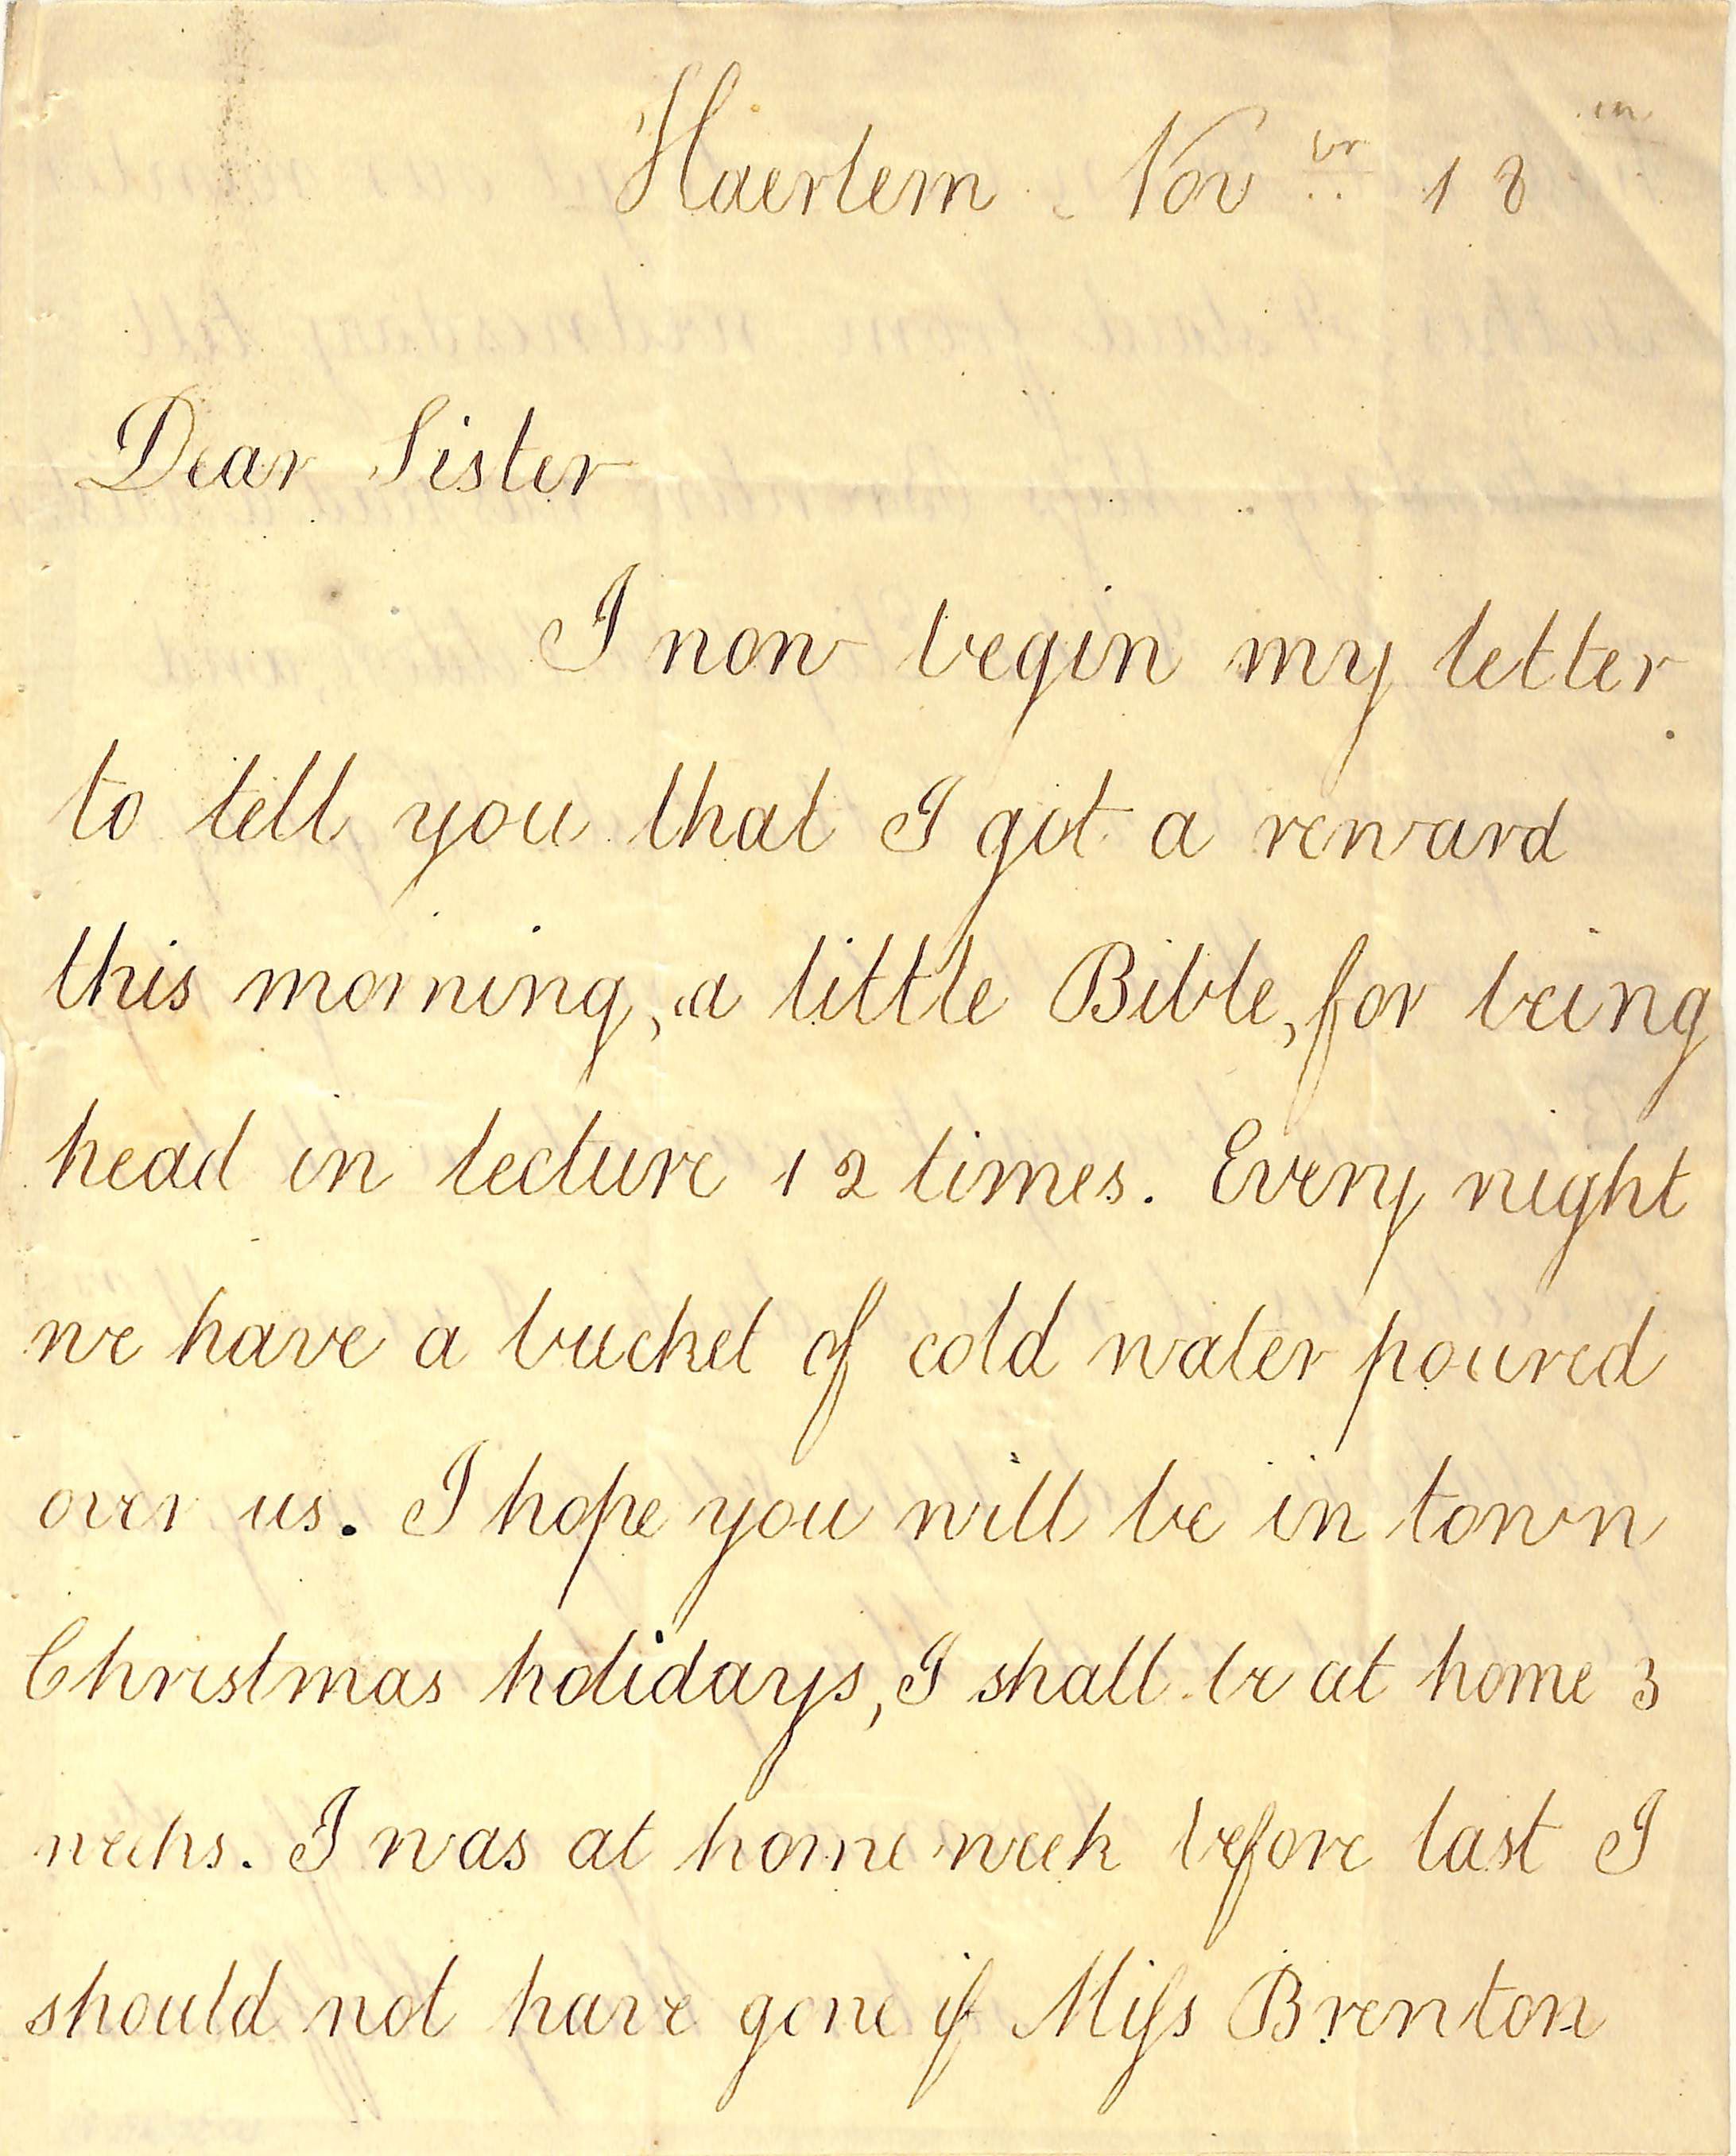 Haerlem. Novbr 18
Dear Sister
I now begin my letter
to tell you that I got a reward
this morning, a little Bible, for being
head in lecture 12 times. Every night
we have a bucket of cold water poured
over us. I hope you will be in town
Christmas holidays, I shall be at home 3
weeks. I was at home week before last I
should not have gone if Miſs Brenton